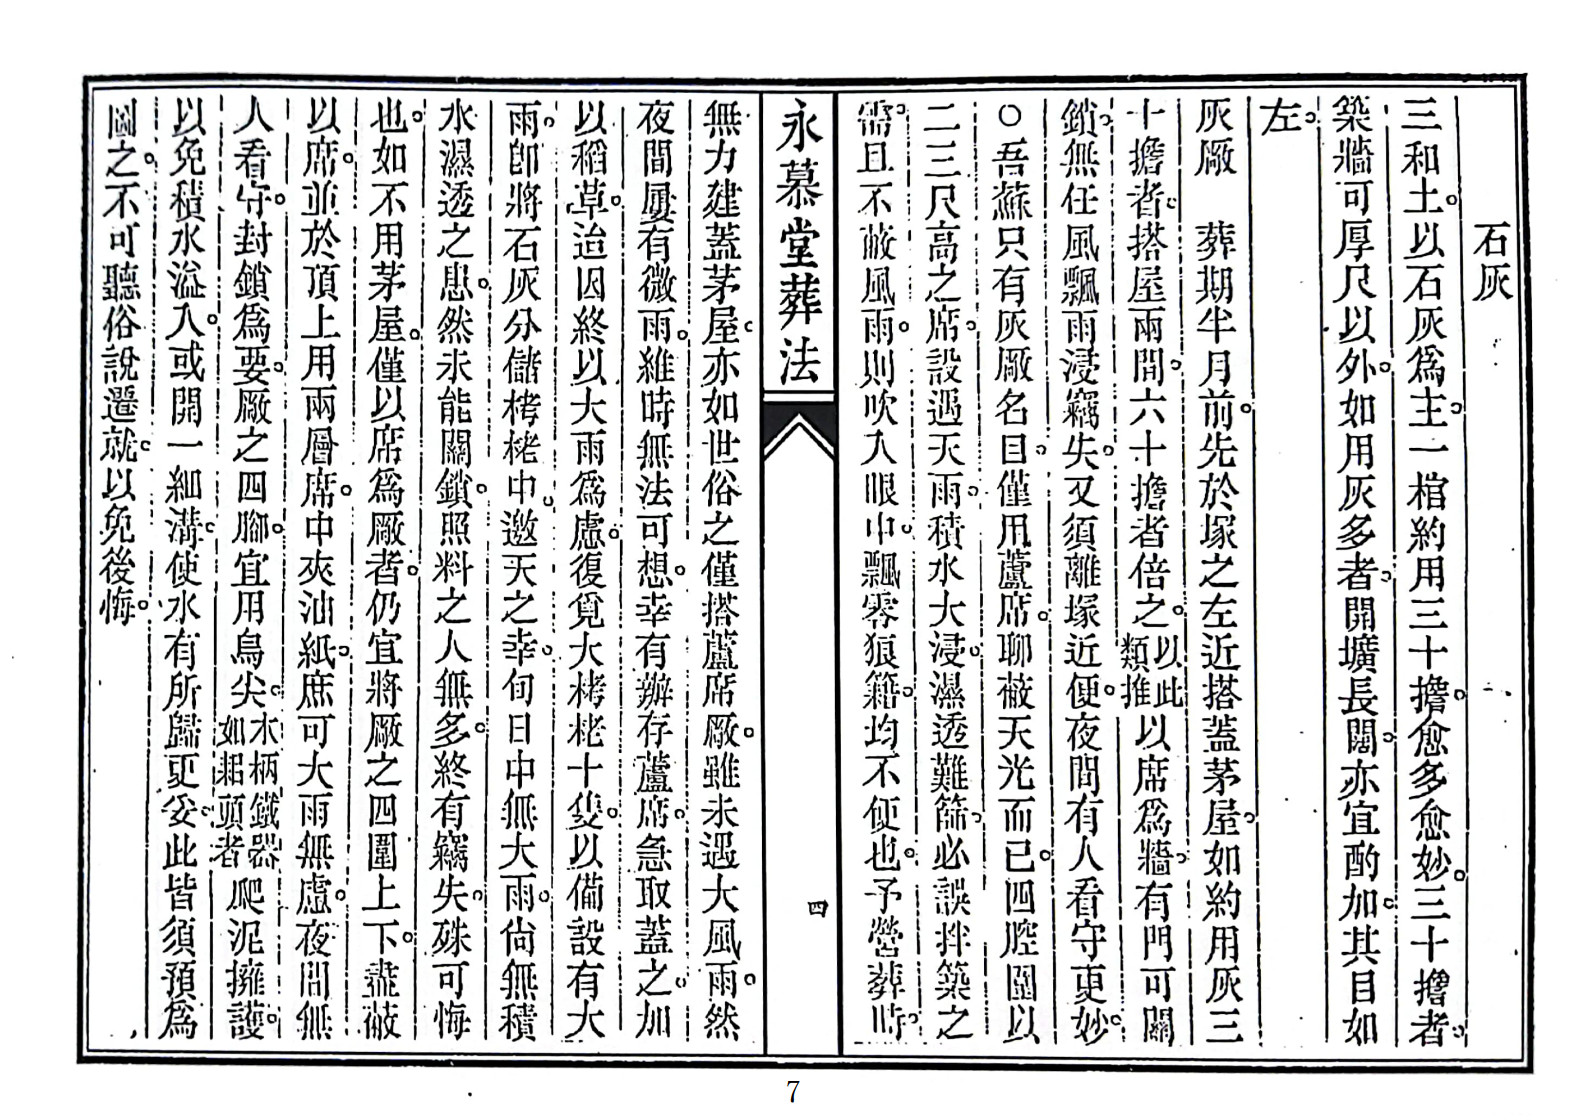 石灰
三和土。以石灰爲主。一棺約用三十擔。愈多愈妙。三十擔者。
築牆可厚尺以外。如用灰多者。開壙長闊。亦宜酌加。其目如
左。
灰厰　葬期半月前。先於塚之左近搭蓋茅屋。如約用灰三
十擔者。搭屋兩間。六十擔者倍之。以此類推以席爲牆。有門可關
鎖。無任風飄雨浸竊失。又須離塚近便。夜間有人看守更妙。
○吾蘇只有灰厰名目。僅用蘆席。聊蔽天光而已。四腔圍以
二三尺高之席。設遇天雨。積水大浸。濕透難篩。必誤拌築之
需。且不蔽風雨。則吹入眼中。飄零狼籍。均不便也。予營葬時。
永慕堂葬法
四
無力建蓋茅屋。亦如世俗之僅搭蘆席厰。雖未遇大風雨。然
夜間屢有微雨。維時無法可想。幸有辦存蘆席。急取蓋之。加
以稻草。迨因終以大雨爲慮。復覓大栲栳十隻。以備設有大
雨。卽將石灰分儲栲栳中。邀天之幸。旬日中無大雨。尙無積
水濕透之患。然未能關鎖。照料之人無多。終有竊失。殊可悔
也。如不用茅屋。僅以席爲厰者。仍宜將厰之四圍上下。盡蔽
以席。並於頂上用兩層席。中夾油紙。庶可大雨無慮。夜間無
人看守。封鎖爲要。厰之四腳。宜用鳥尖。木柄鐵器如耜頭者爬泥擁護。
以免積水溢入。或開一細溝。使水有所歸更妥。此皆須預爲
圖之。不可聽俗說遷就。以免後悔。
7